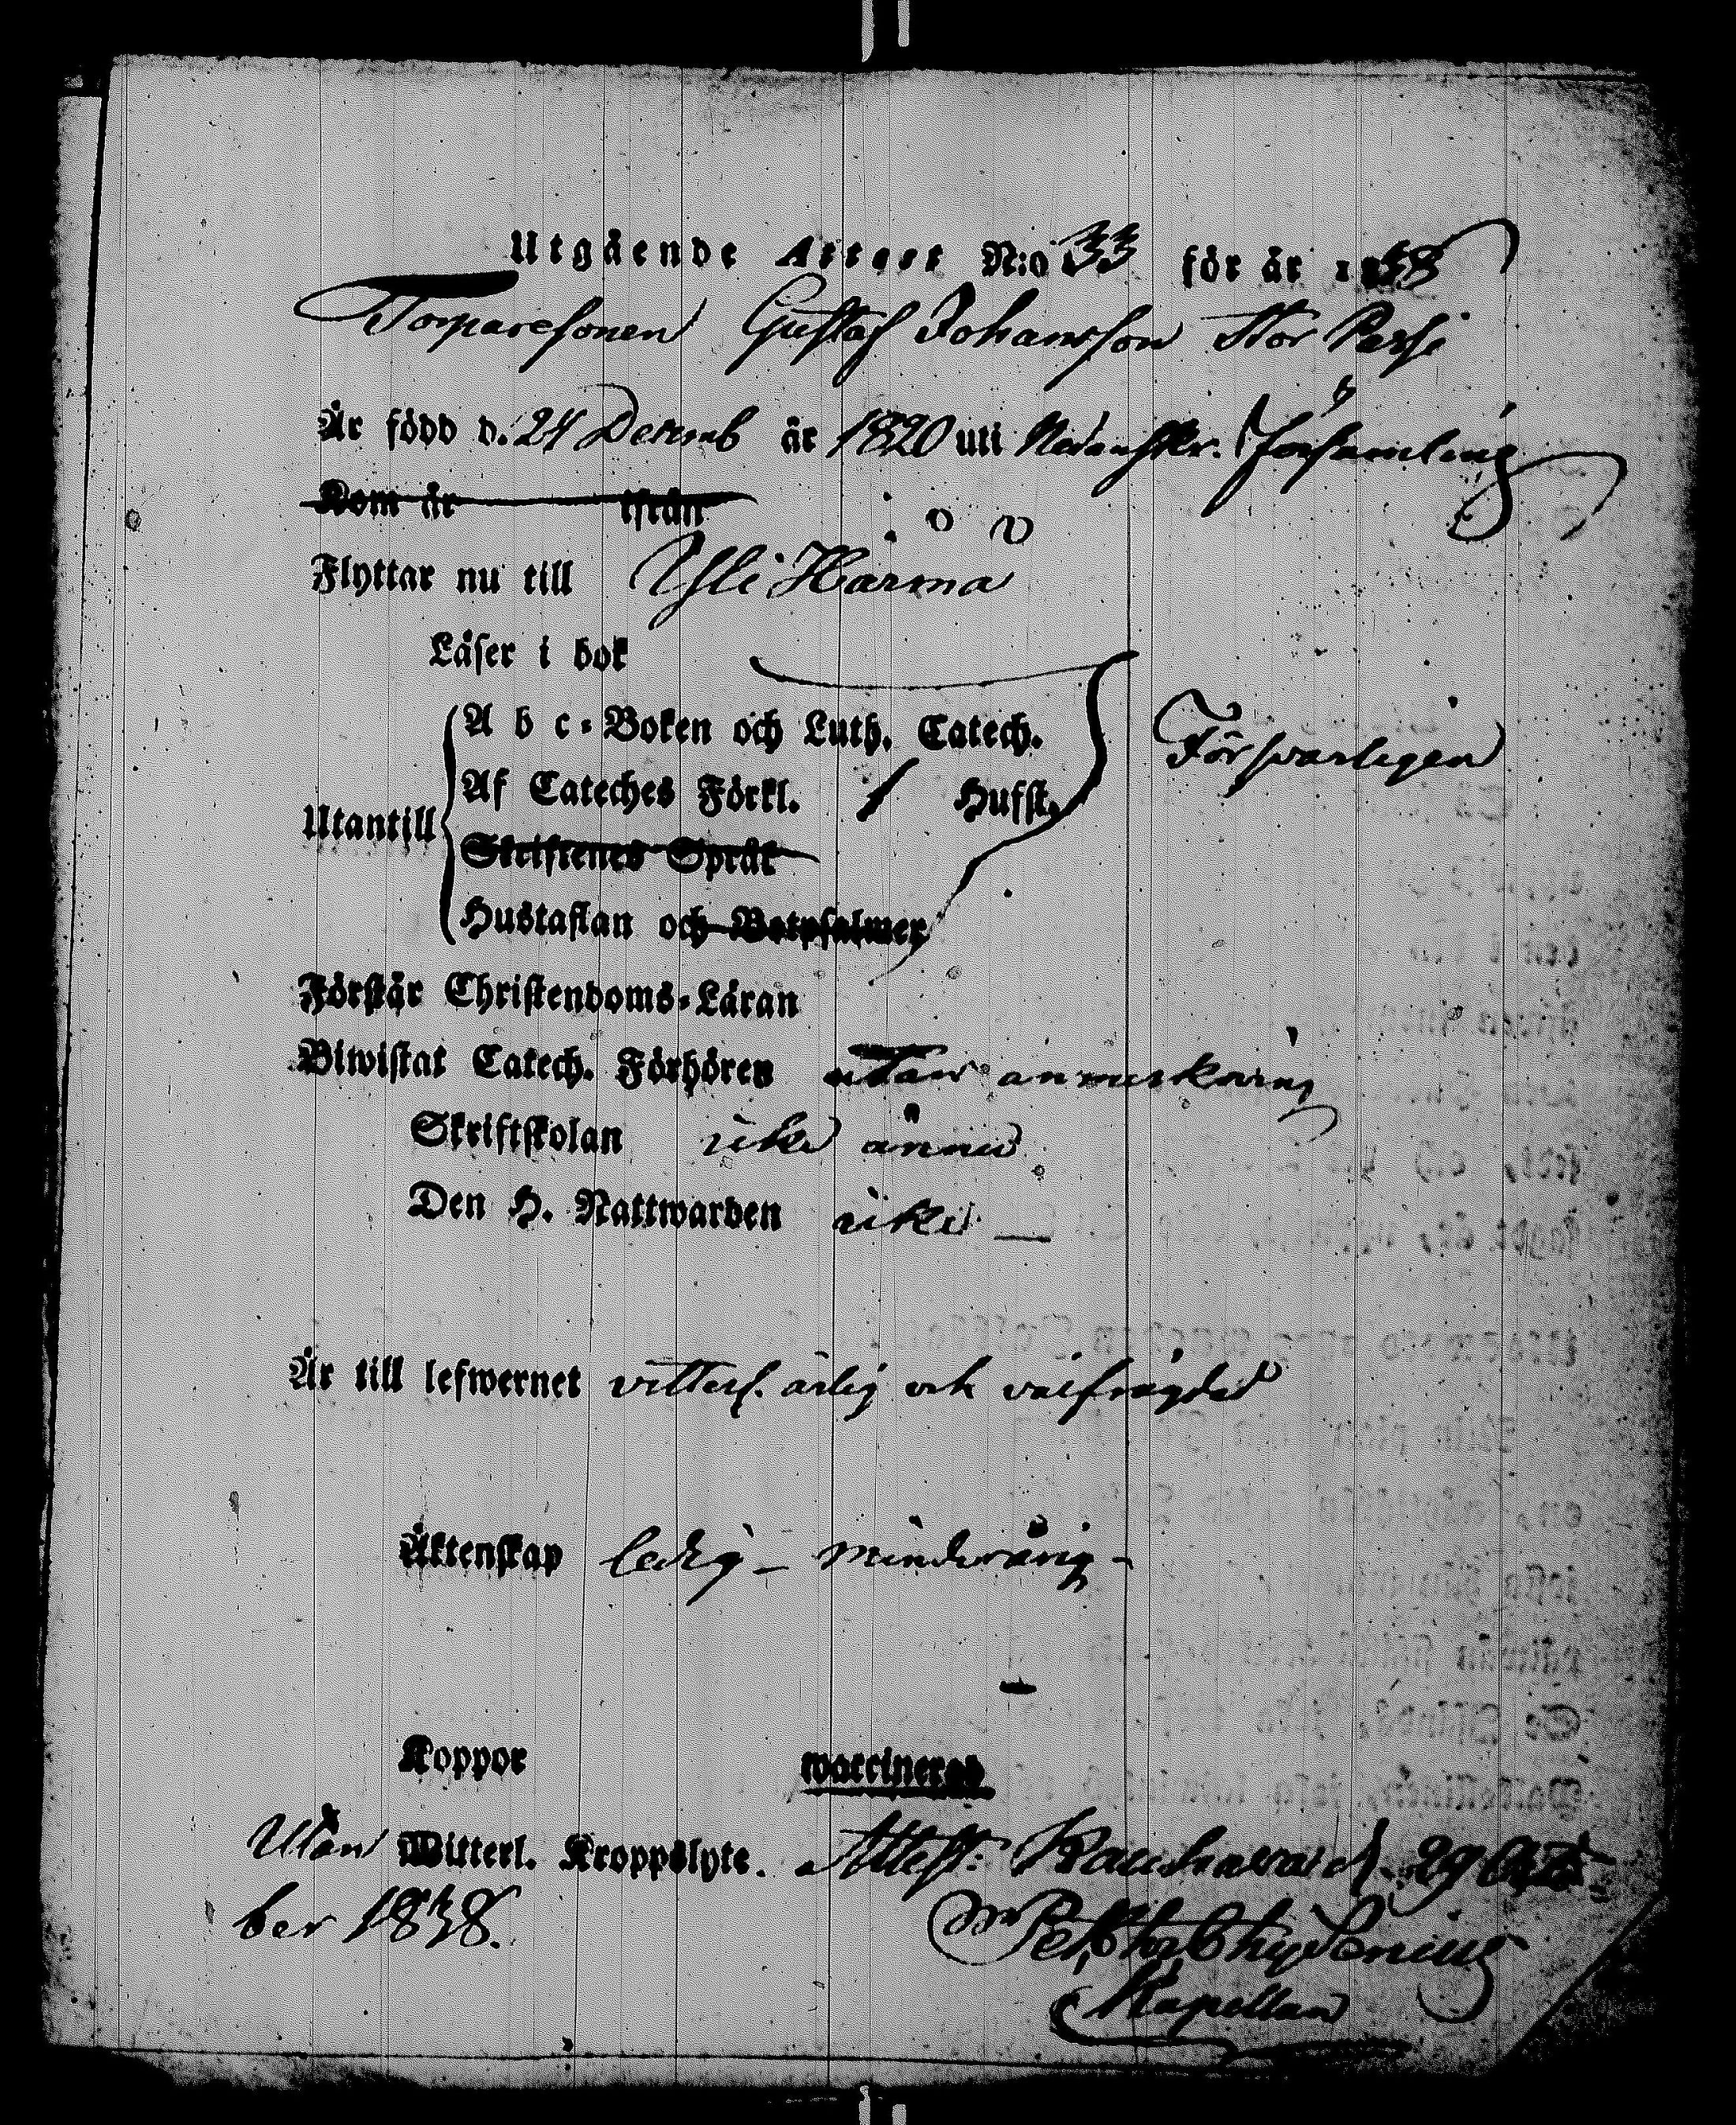 Utgående Attest N:o 33 för år 1838
Torparesonen Gustaf Johansson Stor Passi
Är född d. 24 Decemb år 1820 uti Nedanskr. församling
Kom år ifrån
Flyttar nu till Ylihärmä
Läser i bok
A b c-Boken och Luth. Catech.
Förswarligen
Af Cateches Förkl. 1 Hufst.
Utantill
Skriftenes Språk
Hustaflan och Botpsalmer
Förstår Christendoms-Läran
Biwistat Catech. Förhören utan anmärkning
Skriftskolan icke ännu
Den H. Nattwarden icke —
Är till lefwernet ärlig och välfrägdad
Äktenskap ledig — minderårig —
Koppor waccinerad
Utan Witterl. Kroppslyte. Attest. Kauhava d. 29 Octo-
ber 1838.
Chydenius
Kapellan